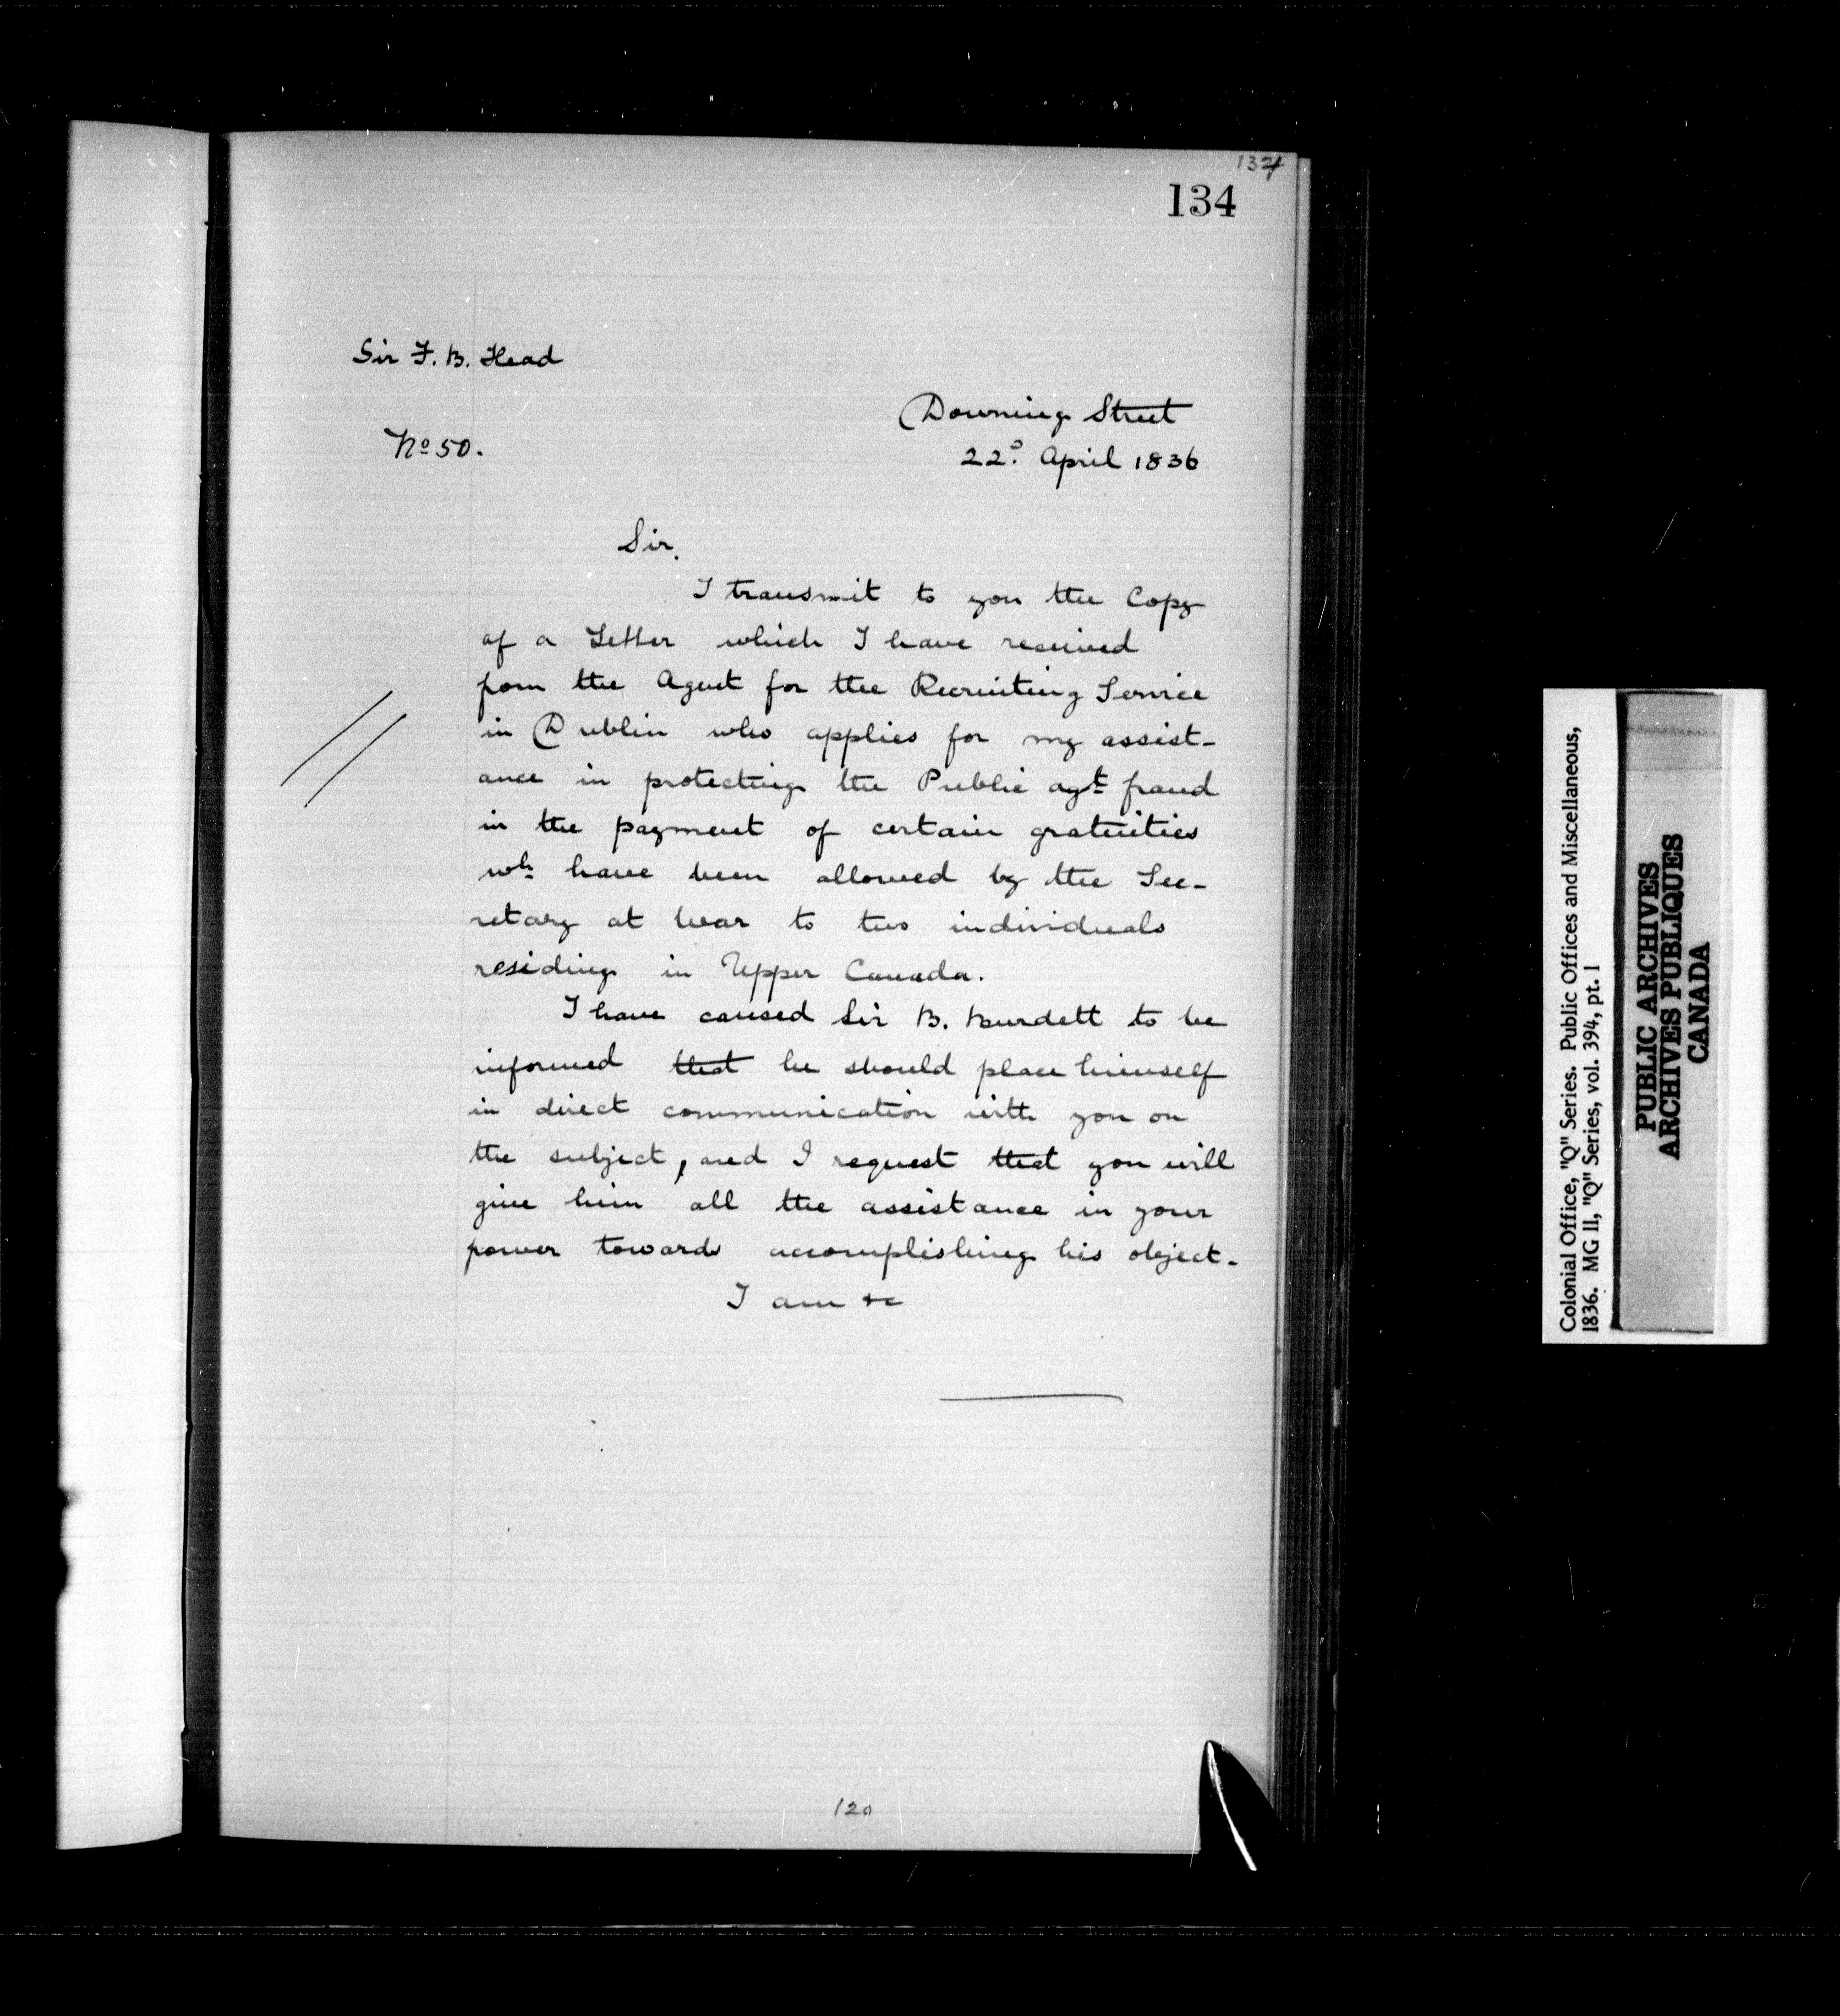 134
134
Sir F. B. Head
Downing Street
No 50.
22d. April 1836
Sir,
I transmit to you the Copy
of a Letter which I have received
from the Agent for the Recruiting Service
in Dublin who applies for my assist-
ance in protecting the Public agt fraud
in the payment of certain gratuities
wh. have been allowed by the Sec-
retary at War to two individuals
residing in Upper Canada.
I have caused Sir B. Burdett to be
informed that he should place himself
in direct communication with you on
the subject, and I request that you will
give him all the assistance in your
power towards accomplishing his object.
I am &c
120
Colonial Office, "Q" Series. Public Offices and Miscellaneous,
1836. MG 11, "Q" Series, vol. 394, pt. 1
PUBLIC ARCHIVES
ARCHIVES PUBLIQUES
CANADA